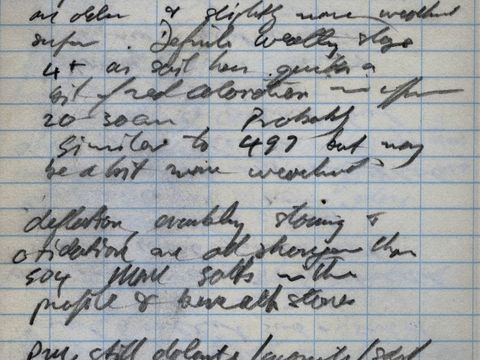 an older & slightly more weathered
surface. Definite weathering stage
4+ as soil has quite a
bit of red coloration in upper
20-30cm Probably
similar to 497 but may
be a bit more weathered

deflation, crumbly stoning &
oxidation are all stronger than
504 more salts in the
profile & beneath stones